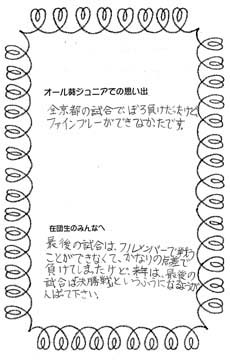 オール葵ジュニアでの思い出
全京都の試合でぼろ負けだったけど
ファインプレーができなかたです
在団生のみんなへ
最後の試合は、フルメンバーで戦う
ことができなくて、かなりの差で
負けてしまたけど、来年は、最後の
試合は決勝戦というふうになるようが
んばて下さい。